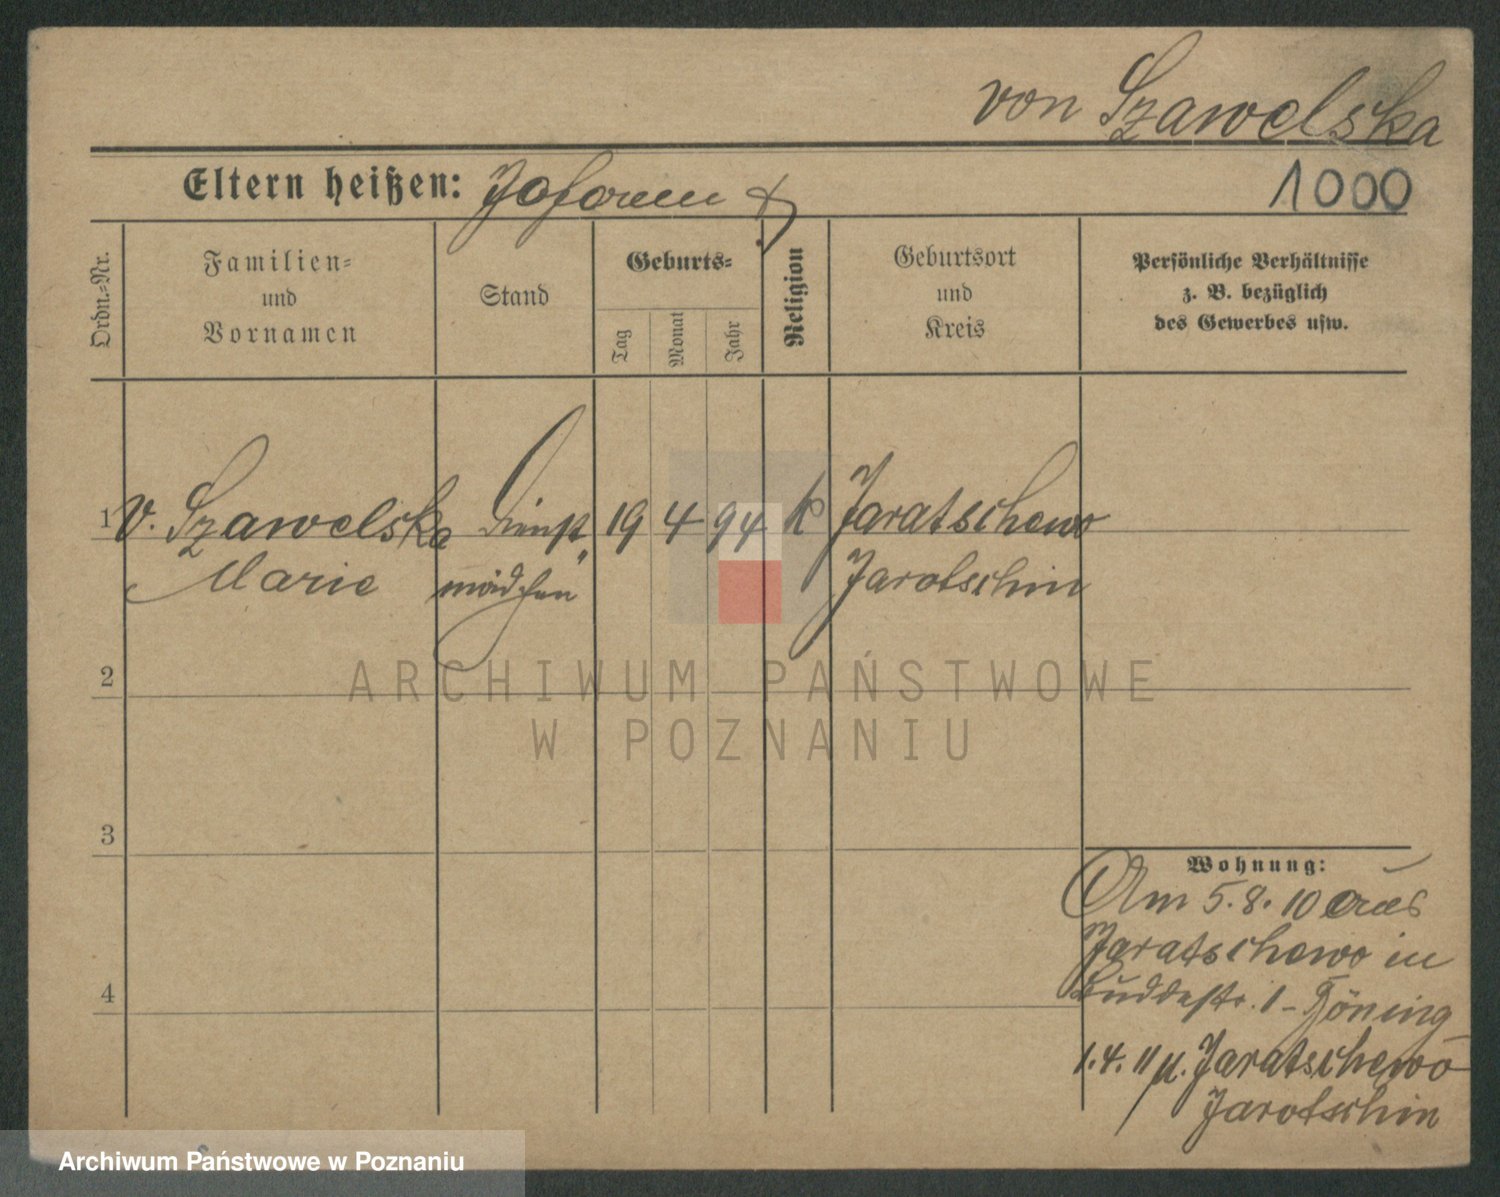 von Szawelska
Eltern heißen: Johann
1000
Ordn.-Nr.
Familien-
und
Vornamen
Stand
Geburts-
Tag
Monat
Jahr
Religion
Geburtsort
und
Kreis
Persönliche Verhältnisse
z. B. bezüglich
des Gewerbes usw.
1 v. Szawelska Dienst 19 4 94 k Jaratschewo
Marie mädchen Jarotschin
2
ARCHIWUM PAŃSTWOWE
W POZNANIU
3
Wohnung:
Am 5. 8. 10 aus
Jaratschewo in
4
Buddestr. 1 - Töning
1. 4. 11 n. Jaratschewo
Jarotschin
Archiwum Państwowe w Poznaniu